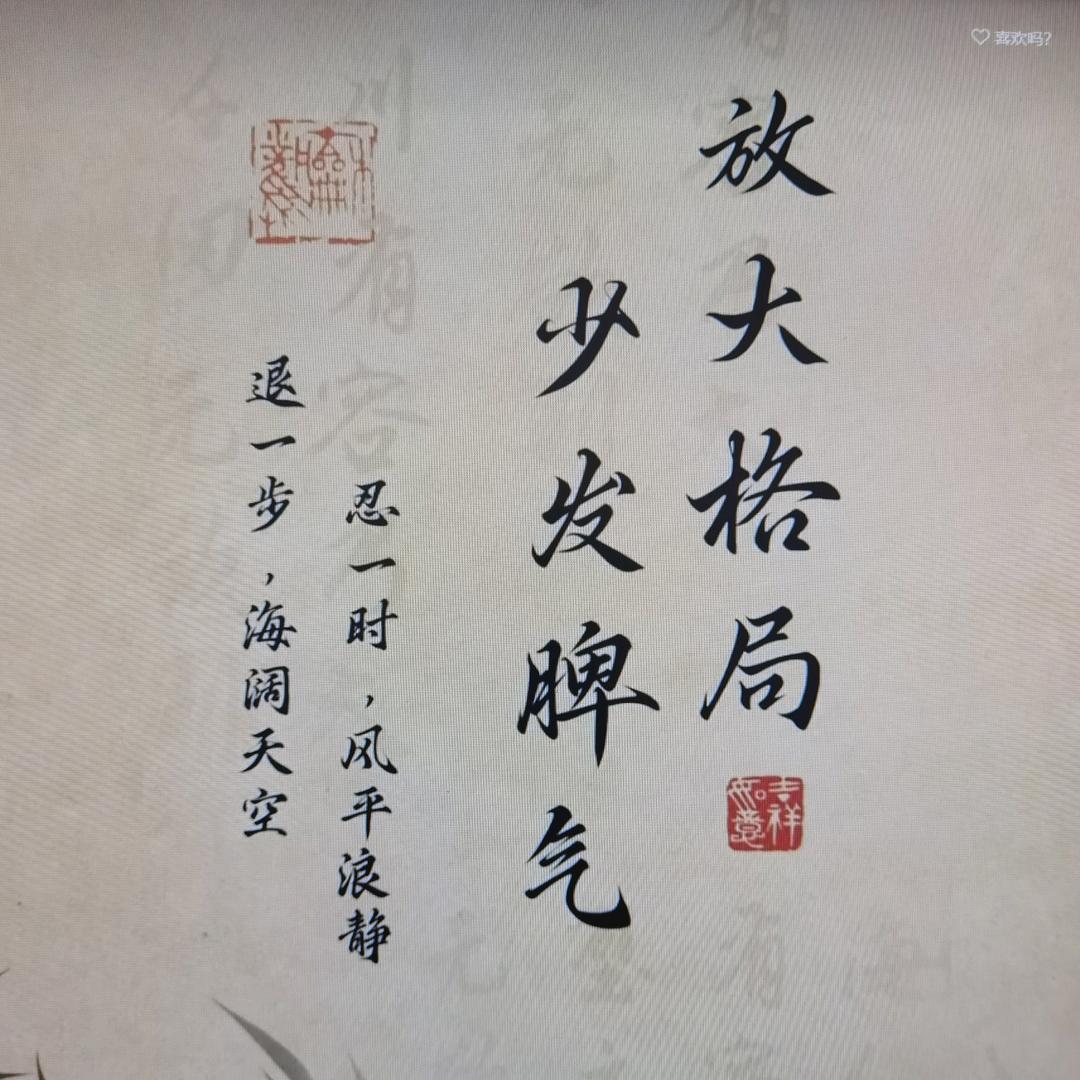 放大格局
少发脾气
忍一时，风平浪静
退一步，海阔天空
吉祥如意
喜欢吗？